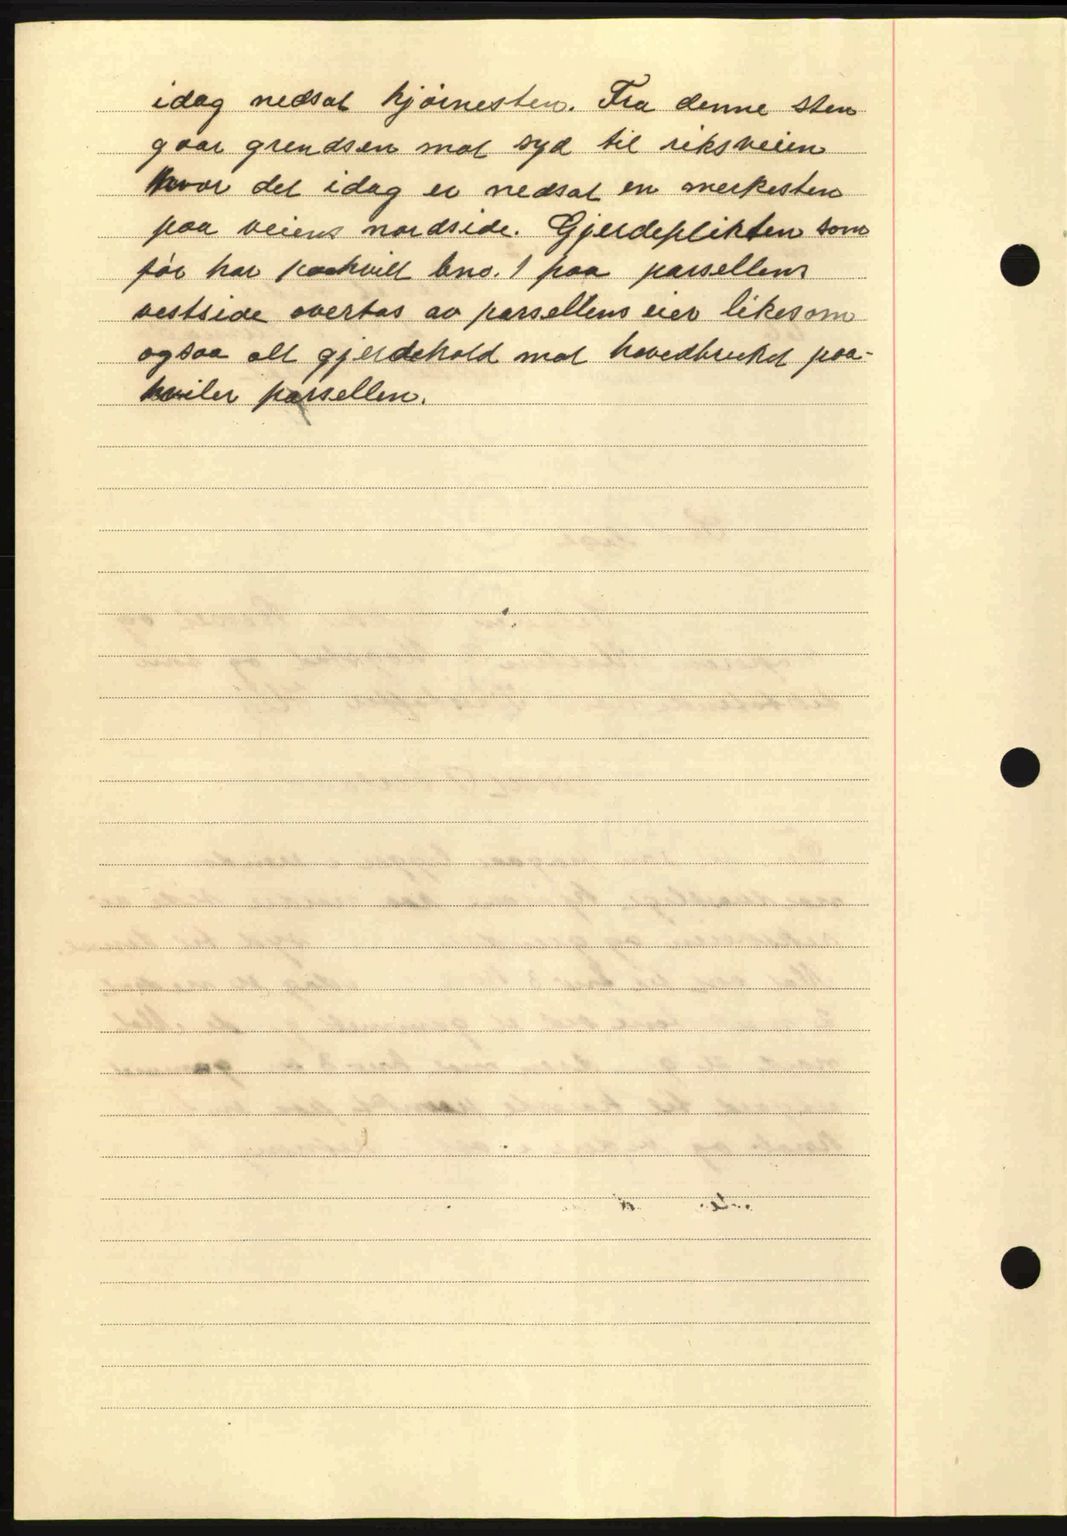 idag nedsat hjørnesten. Fra denne sten
gaar grendsen mot syd til riksveien
hvor det idag er nedsat en merkesten
paa veiens nordside. Gjerdeplikten som
før har paahvilt bno. 1 paa parsellens
vestside overtas av parsellens eier likesom
ogsaa alt gjerdehold mot hovedbruket paa-
hviler parsellen.